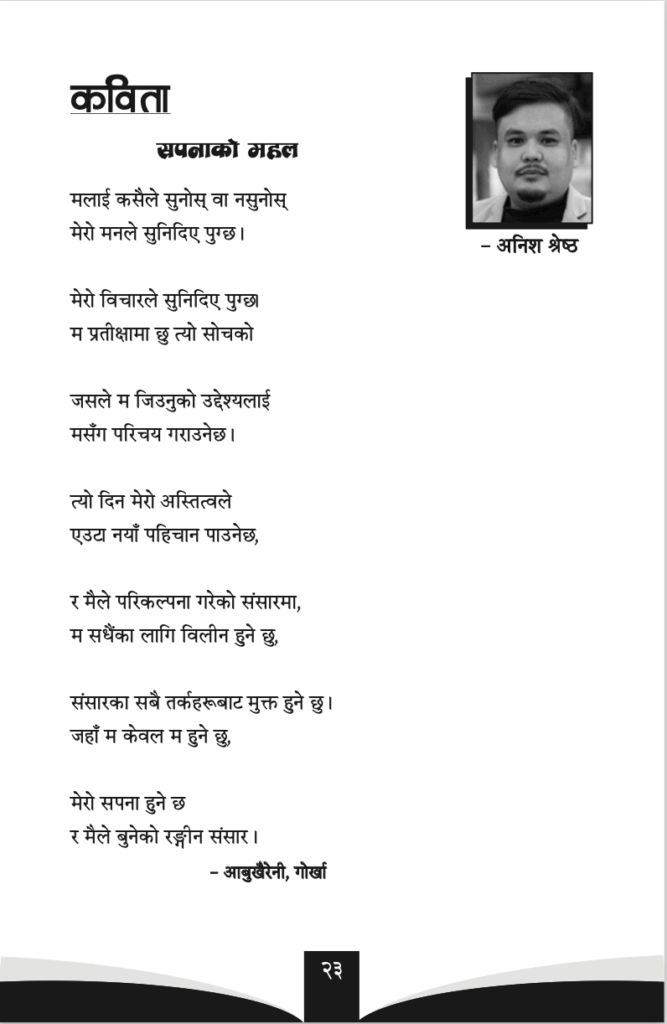 कविता
सपनाको महल
– अनिश श्रेष्ठ
मलाई कसैले सुनोस् वा नसुनोस्
मेरो मनले सुनिदिए पुग्छ।
मेरो विचारले सुनिदिए पुग्छ।
म प्रतीक्षामा छु त्यो सोचको
जसले म जिउनुको उद्देश्यलाई
मसँग परिचय गराउनेछ।
त्यो दिन मेरो अस्तित्वले
एउटा नयाँ पहिचान पाउनेछ,
र मैले परिकल्पना गरेको संसारमा,
म सधैंका लागि विलीन हुने छु,
संसारका सबै तर्कहरूबाट मुक्त हुने छु।
जहाँ म केवल म हुने छु,
मेरो सपना हुने छ
र मैले बुनेको रङ्गीन संसार।
– आबुखैरेनी, गोर्खा
२३